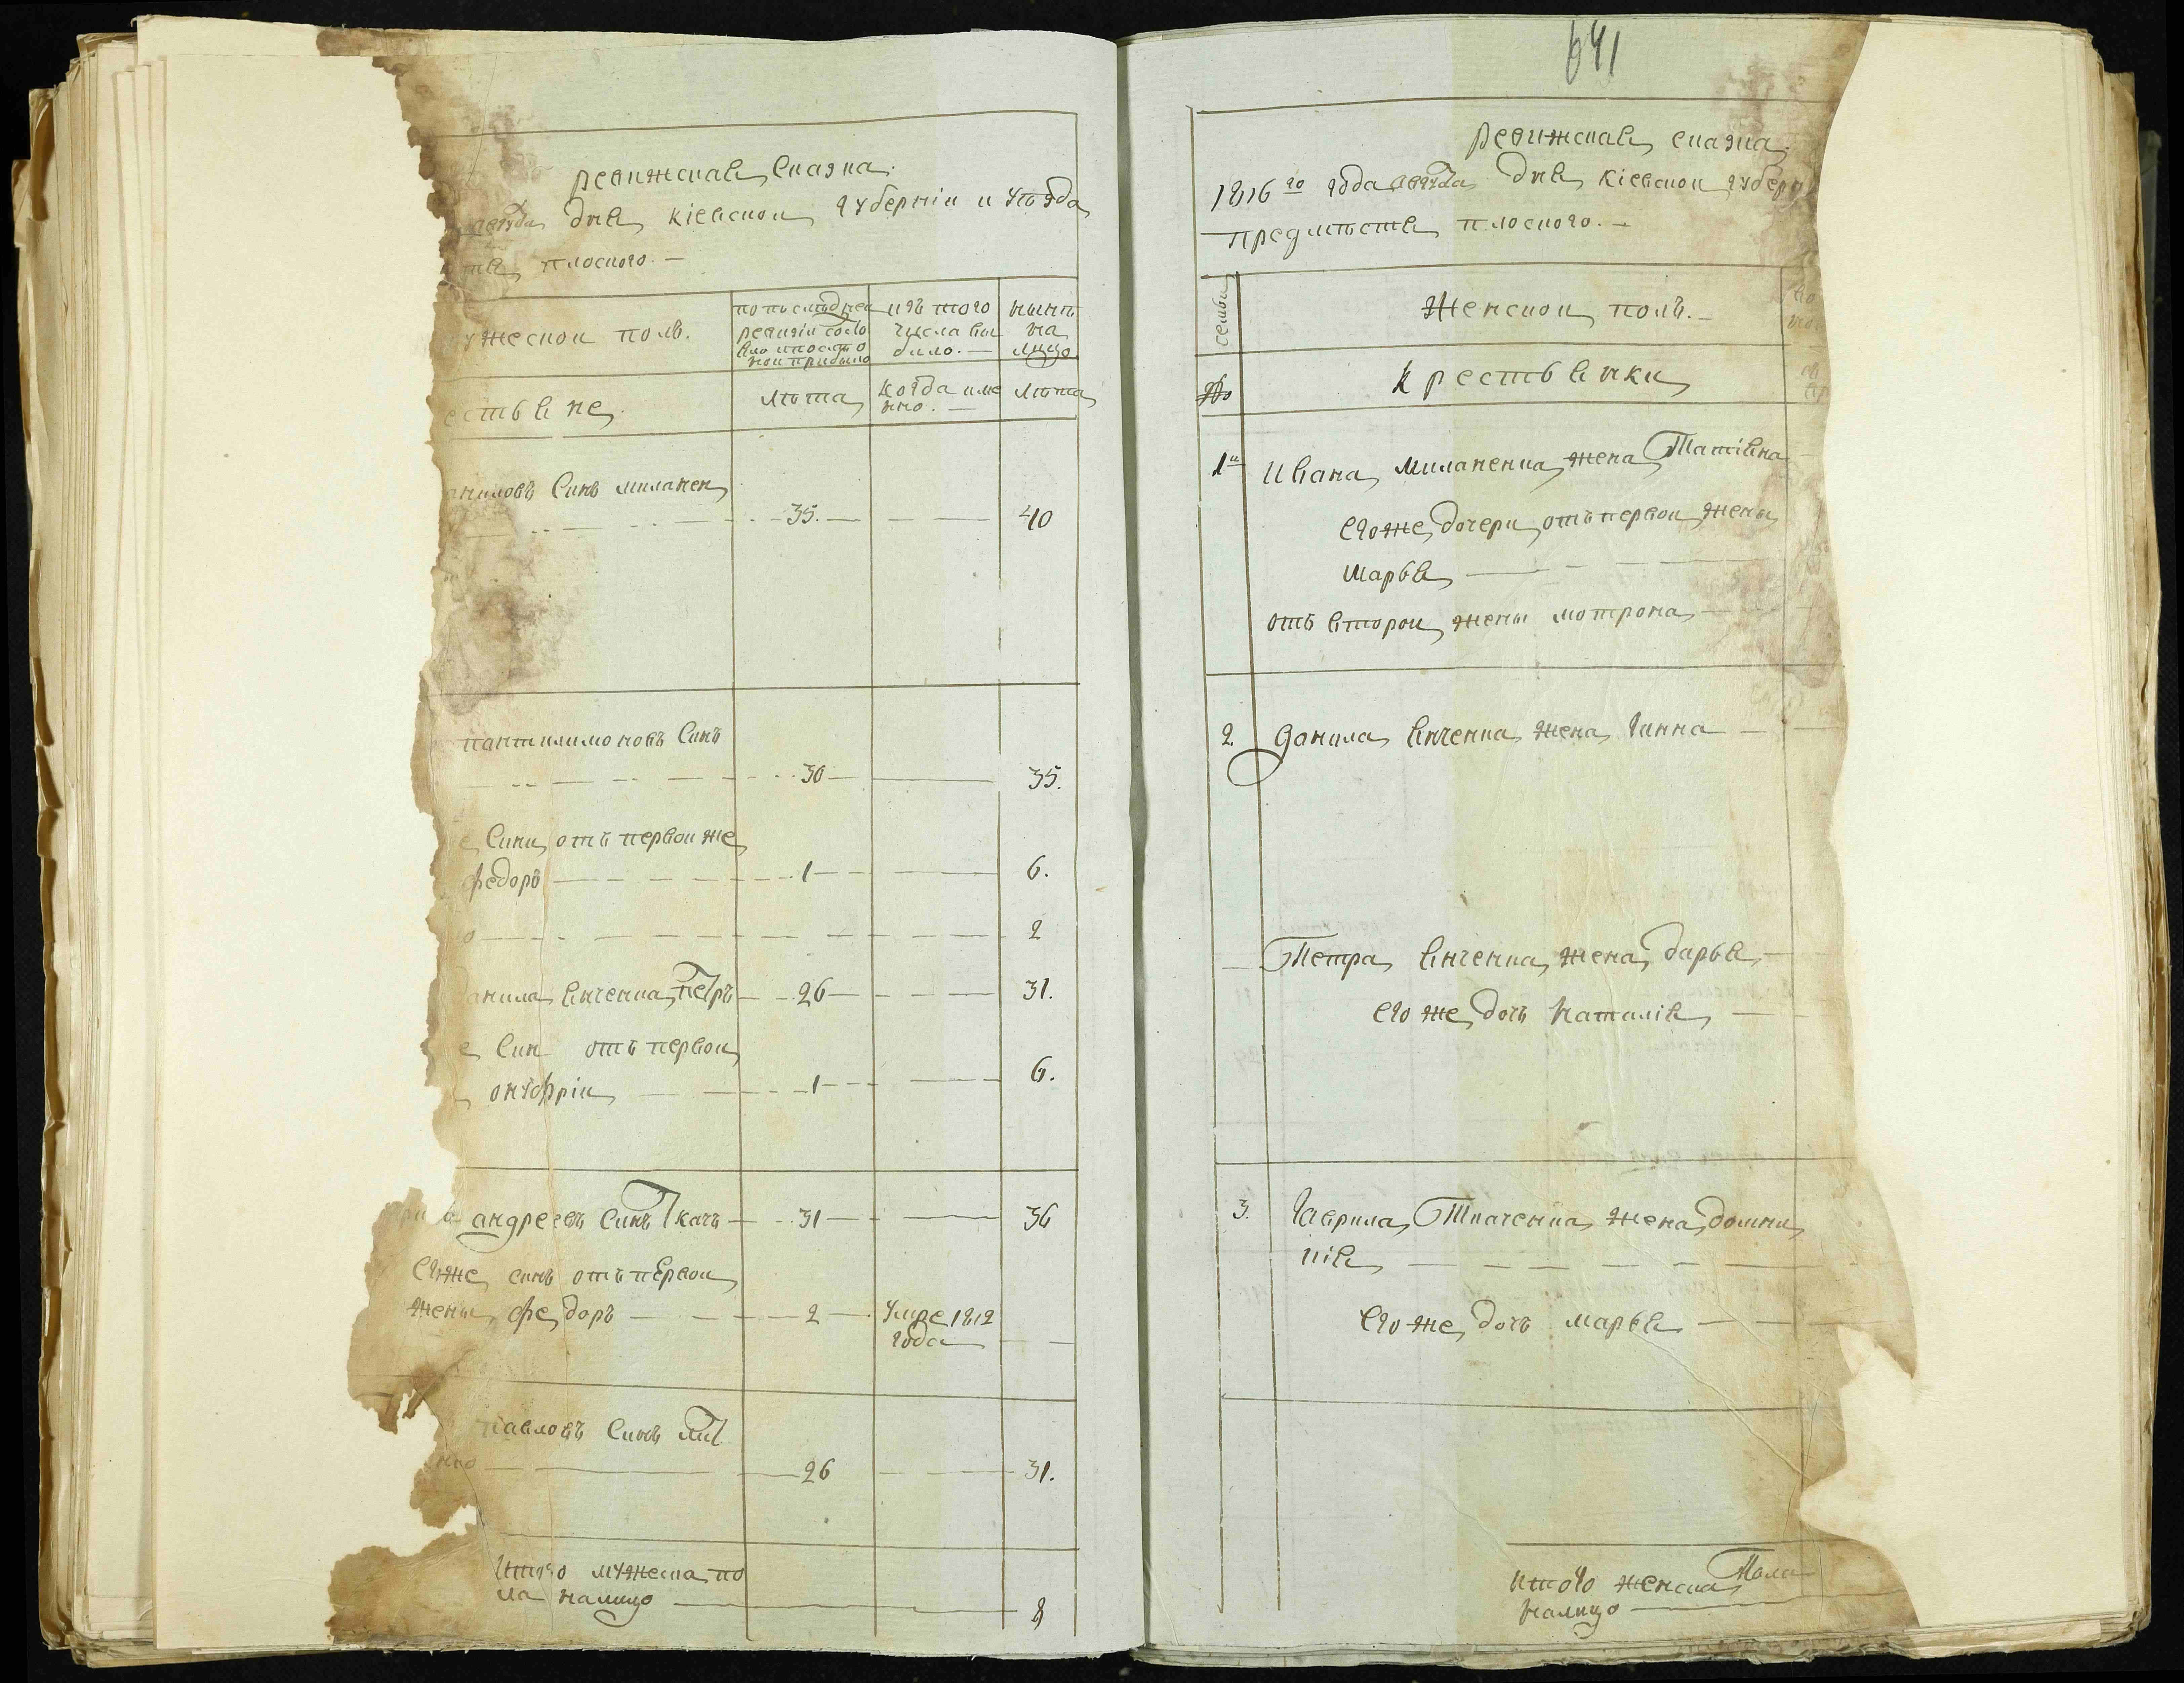 ревижская сказка.
августа дня кіевской губерніи и уѣзда
тя плоского. —
ужеской полъ.
по послѣдней ревизіи состояло и после оной прибыло
изъ того числа выбыло. —
нынѣ на лицо
естьяне.
лѣта
когда именно. —
лѣта
аниловъ синъ миланен
35. 40
пантилимоновъ синъ
30 35.
е сини отъ первой же
федоръ 1 6.
о 2
данила янченка петръ 26 31.
е син отъ первой
онуфрій 1 6.
андреевъ синъ ткачъ 31 36
егоже синъ отъ первой
жены федоръ 2 умре 1812
года
павловъ синъ
нко 26 31.
итого мужеска по
ла налицо 8
641
ревижская сказка.
1816 го года августа дня кіевской губер
предмѣстя плоского. —
семьи
Женской полъ. —
№
крестьянки
1й ивана миланенка жена Татіяна
егоже дочери отъ первой жены
марья
отъ второй жены мотрона
2. данила янченка жена ганна
Петра янченка жена дарья
его же дочь наталія
3. гаврила Ткаченка жена домни
кія
его же дочь марья
итого женска Пола
налицо